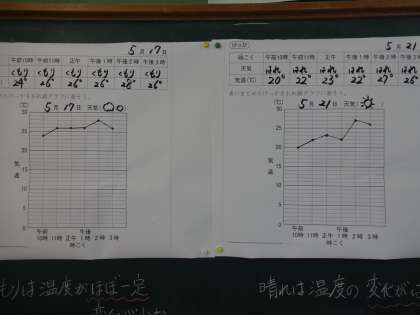 5月17日
午前10時 午前11時 正午 午後1時 午後2時 午後3時
くもり くもり くもり くもり くもり くもり
24° 26° 26° 26° 28° 26°
5月17日 天気
(℃)
30
25
20
15
10
5
0
気温
午前 午後
10時 11時 正午 1時 2時 3時
時こく
もりは温度がほぼ一定
けっか
5月21
時こく 午前10時 午前11時 正午 午後1時 午後2時 午後3時
天気 はれ はれ はれ はれ はれ はれ
気温(℃) 20° 22° 23° 22° 27° 26°
5月21日 天気
(℃)
30
25
20
15
10
5
0
気温
午前 午後
10時 11時 正午 1時 2時 3時
時こく
晴れは温度の変化が